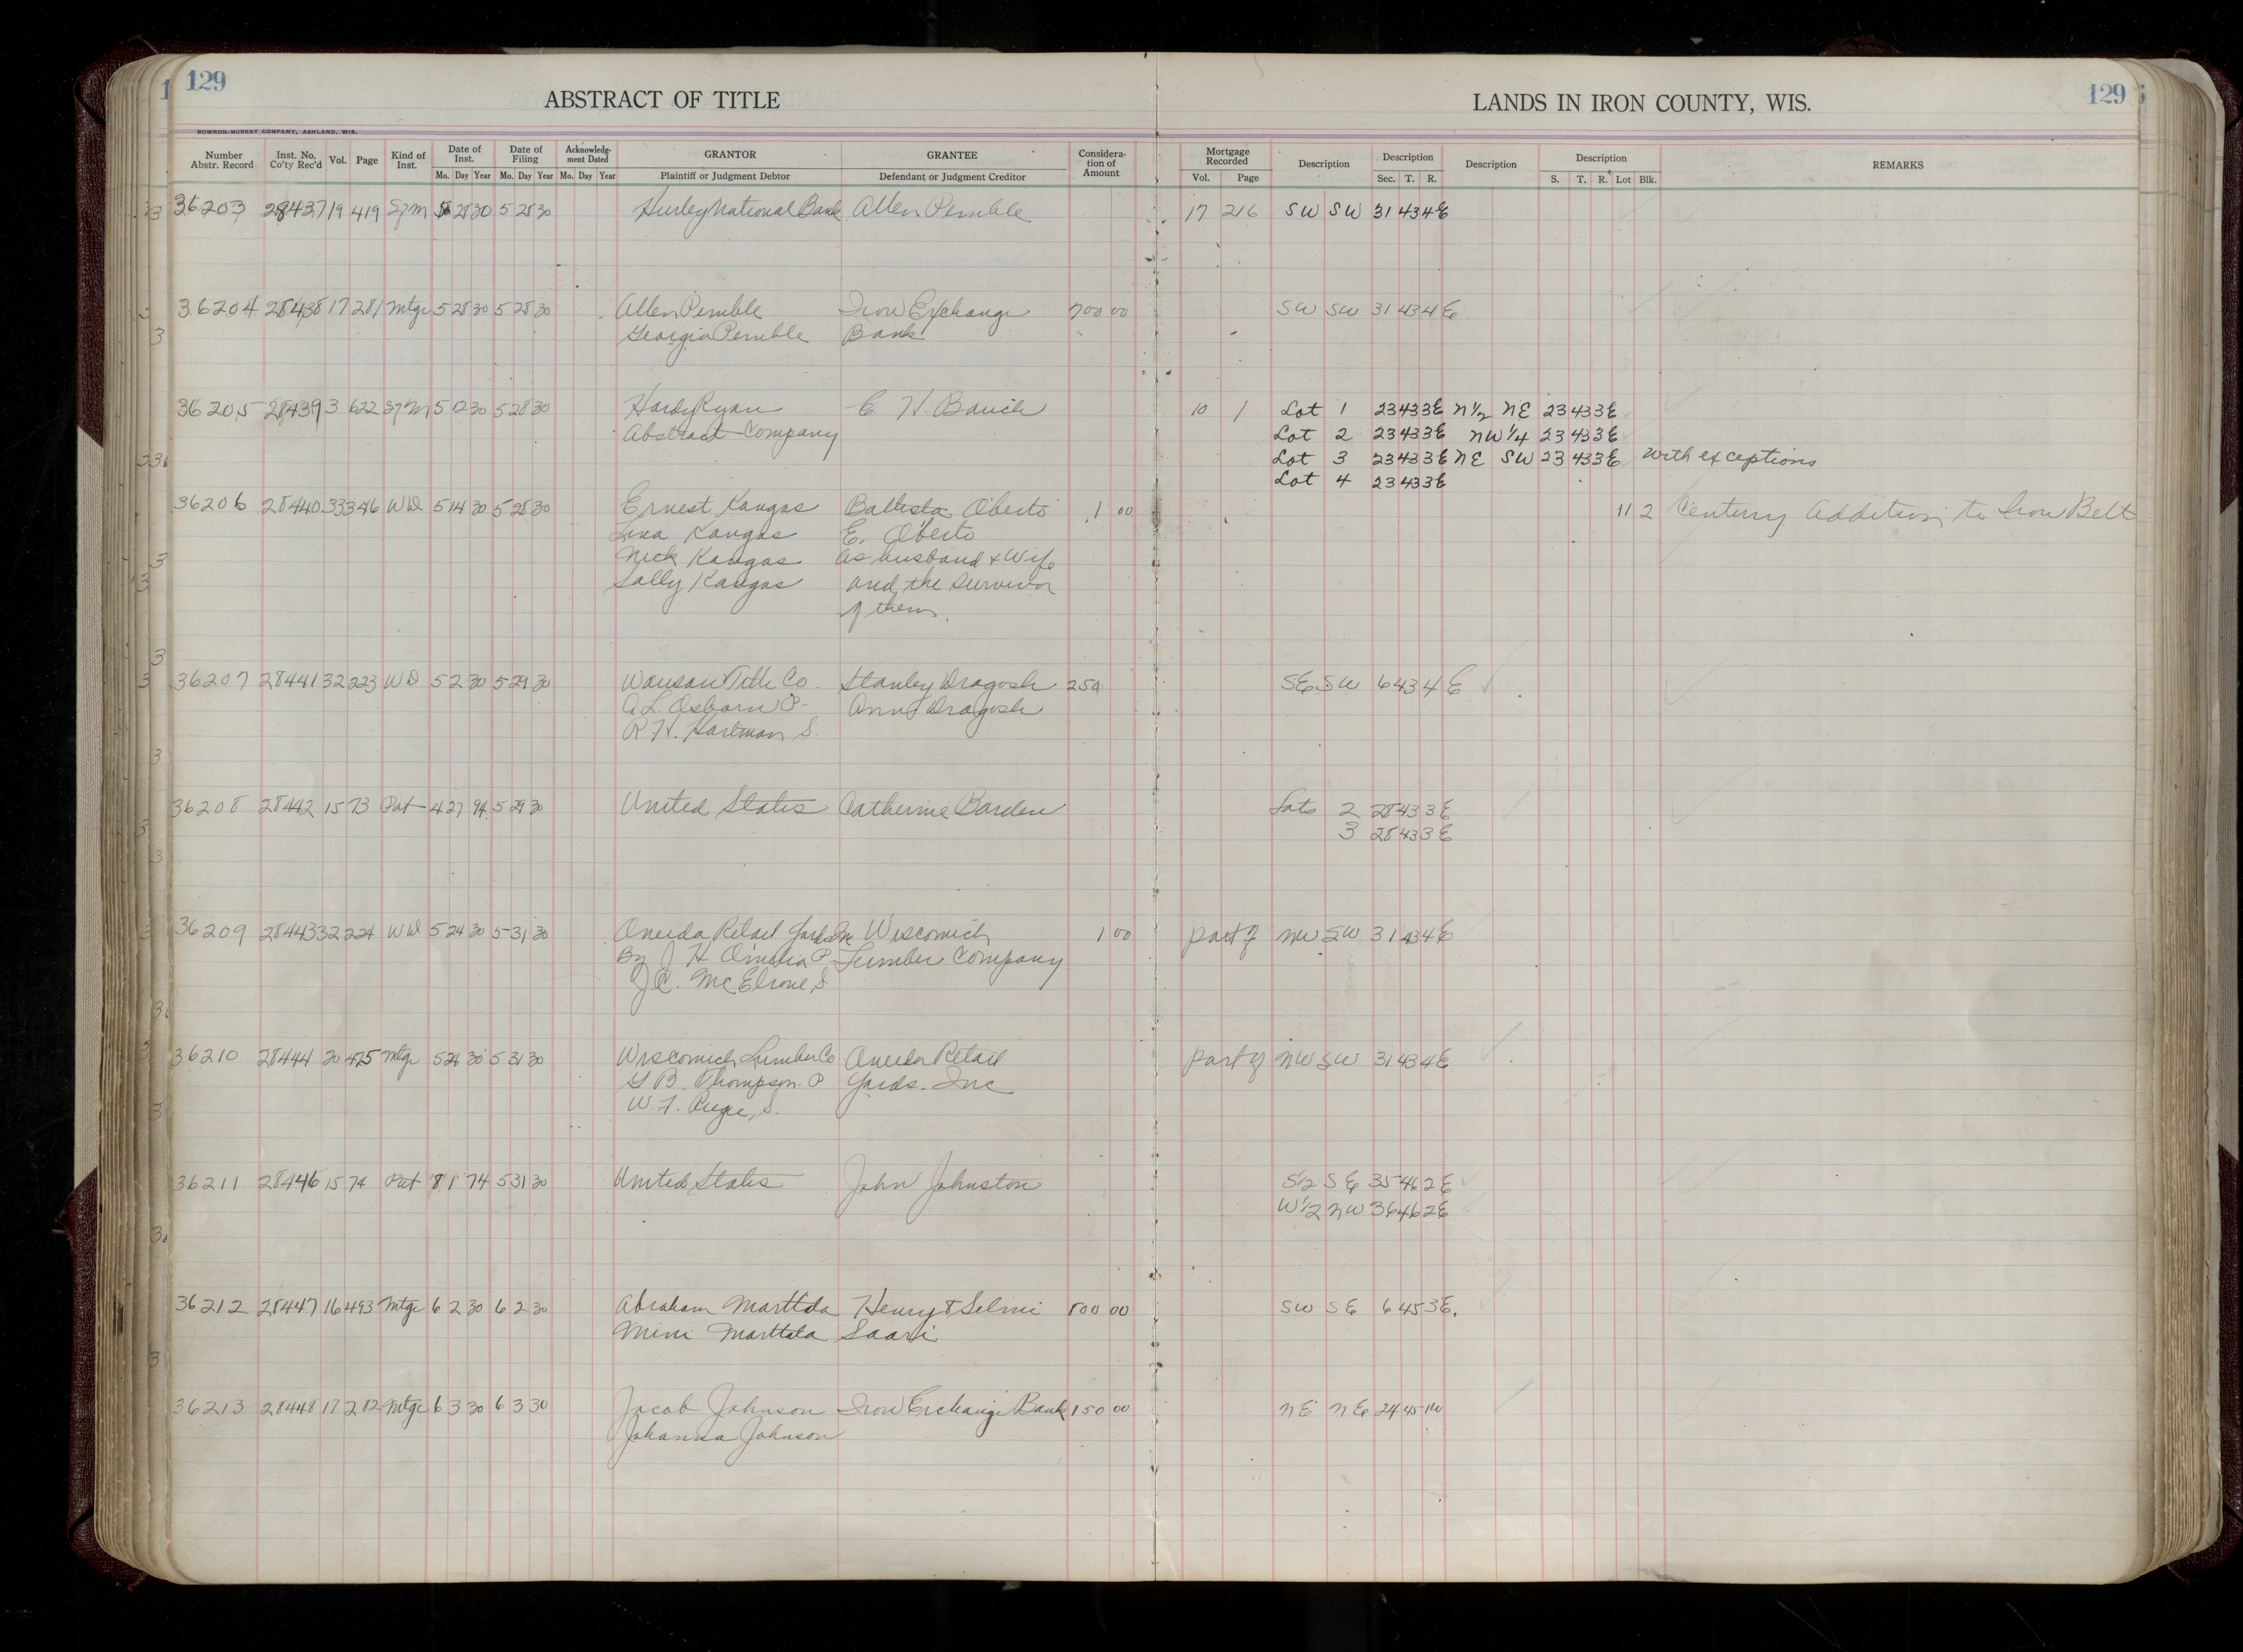 129
ABSTRACT OF TITLE
LANDS IN IRON COUNTY, WIS.
129
BOWRON-MURRAY COMPANY, ASHLAND, WIS.
Number Abstr. Record | Inst. No. Co'ty Rec'd | Vol. | Page | Kind of Inst. | Date of Inst. Mo. Day Year | Date of Filing Mo. Day Year | Acknowledg-ment Dated Mo. Day Year | GRANTOR Plaintiff or Judgment Debtor | GRANTEE Defendant or Judgment Creditor | Considera-tion of Amount | Mortgage Recorded Vol. Page | Description | Description Sec. T. R. | Description | Description S. T. R. Lot Blk. | REMARKS
36203 28437 19 419 5 28 30 5 28 30 Hurley National Bank Allen Pemble 17 216 SW SW 31 43 4E
36204 28438 17 281 Mtge 5 28 30 5 28 30 Allen Pemble Iron Exchange 700 00 SW SW 31 43 4E
Georgia Pemble Bank
36205 28439 3 622 5 12 30 5 28 30 Hardy Ryan C H. 10 1 Lot 1 23 43 3E N1/2 NE 23 43 3E
Abstract Company Lot 2 23 43 3E NW1/4 23 43 3E
Lot 3 23 43 3E NE SW 23 43 3E with exceptions
Lot 4 23 43 3E
36206 28440 33 346 WD 5 14 30 5 28 30 Ernest Kangas Battista Oberto 1 00 11 2 Century Addition to Iron Belt
Lina Kangas E. Oberto
Nick Kangas as husband & Wife
Sally Kangas and the survivor
of them.
36207 28441 32 223 WD 5 2 30 5 29 30 Wausau Title Co Stanley Dragosh 250 SE SW 6 43 4E
A.L. Osborn P. Anna Dragosh
R H. Hartman S.
36208 28442 15 73 Pat 4 27 94 5 29 30 United States Catherine Barden Lots 2 28 43 3E
3 28 43 3E
36209 28443 32 224 WD 5 24 30 5 31 30 Oneida Retail Yards Inc Wiscomich 1 00 part of NW SW 31 43 4E
By J H O'Melia P Lumber Company
J C. McElrone S
36210 28444 20 425 Mtge 5 24 30 5 31 30 Wiscomich Lumber Co Oneida Retail part of NW SW 31 43 4E
G B. Thompson. P Yards. Inc
W. F. S.
36211 28446 15 74 Pat 8 1 74 5 31 30 United States John Johnston S1/2 SE 35 46 2E
W1/2 NW 36 46 2E
36212 28447 16 493 Mtge 6 2 30 6 2 30 Abraham Marttala Henry & Selmi 800 00 SW SE 6 45 3E.
Mini Marttala Saari
36213 28448 17 282 Mtge 6 3 30 6 3 30 Jacob Johnson Iron Exchange Bank 150 00 NE NE 24 45 1W
Johanna Johnson